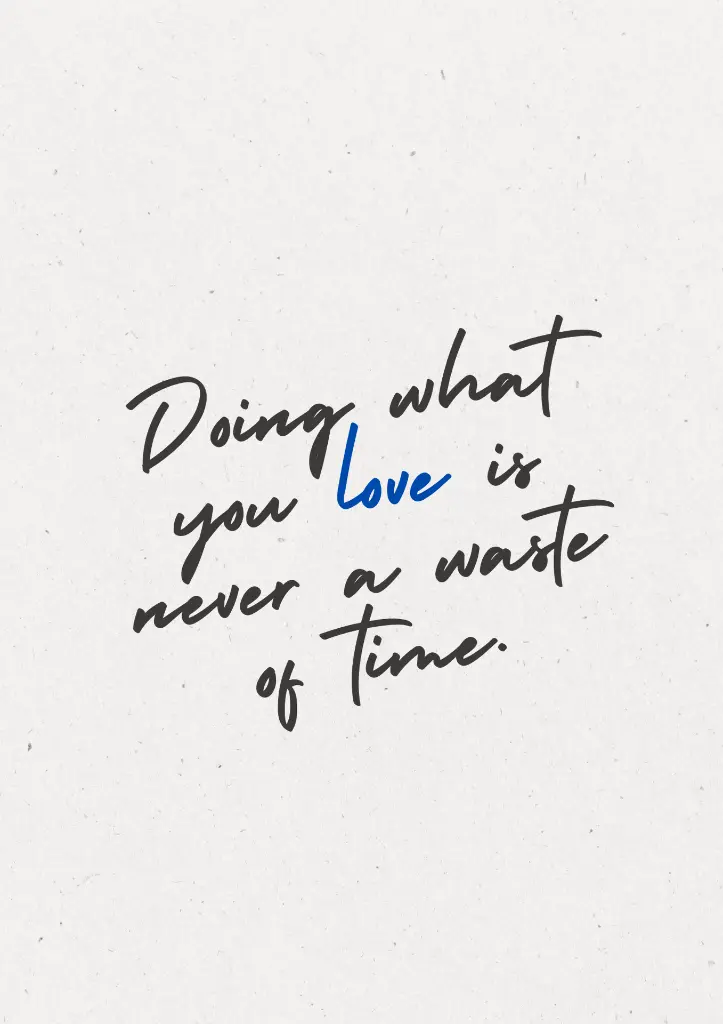 Doing what
you love is
never a waste
of time.